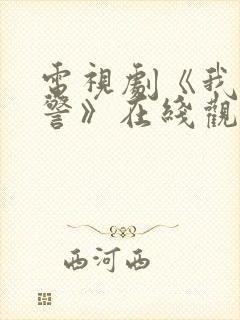 電視劇《我
警》在綫觀
西河西